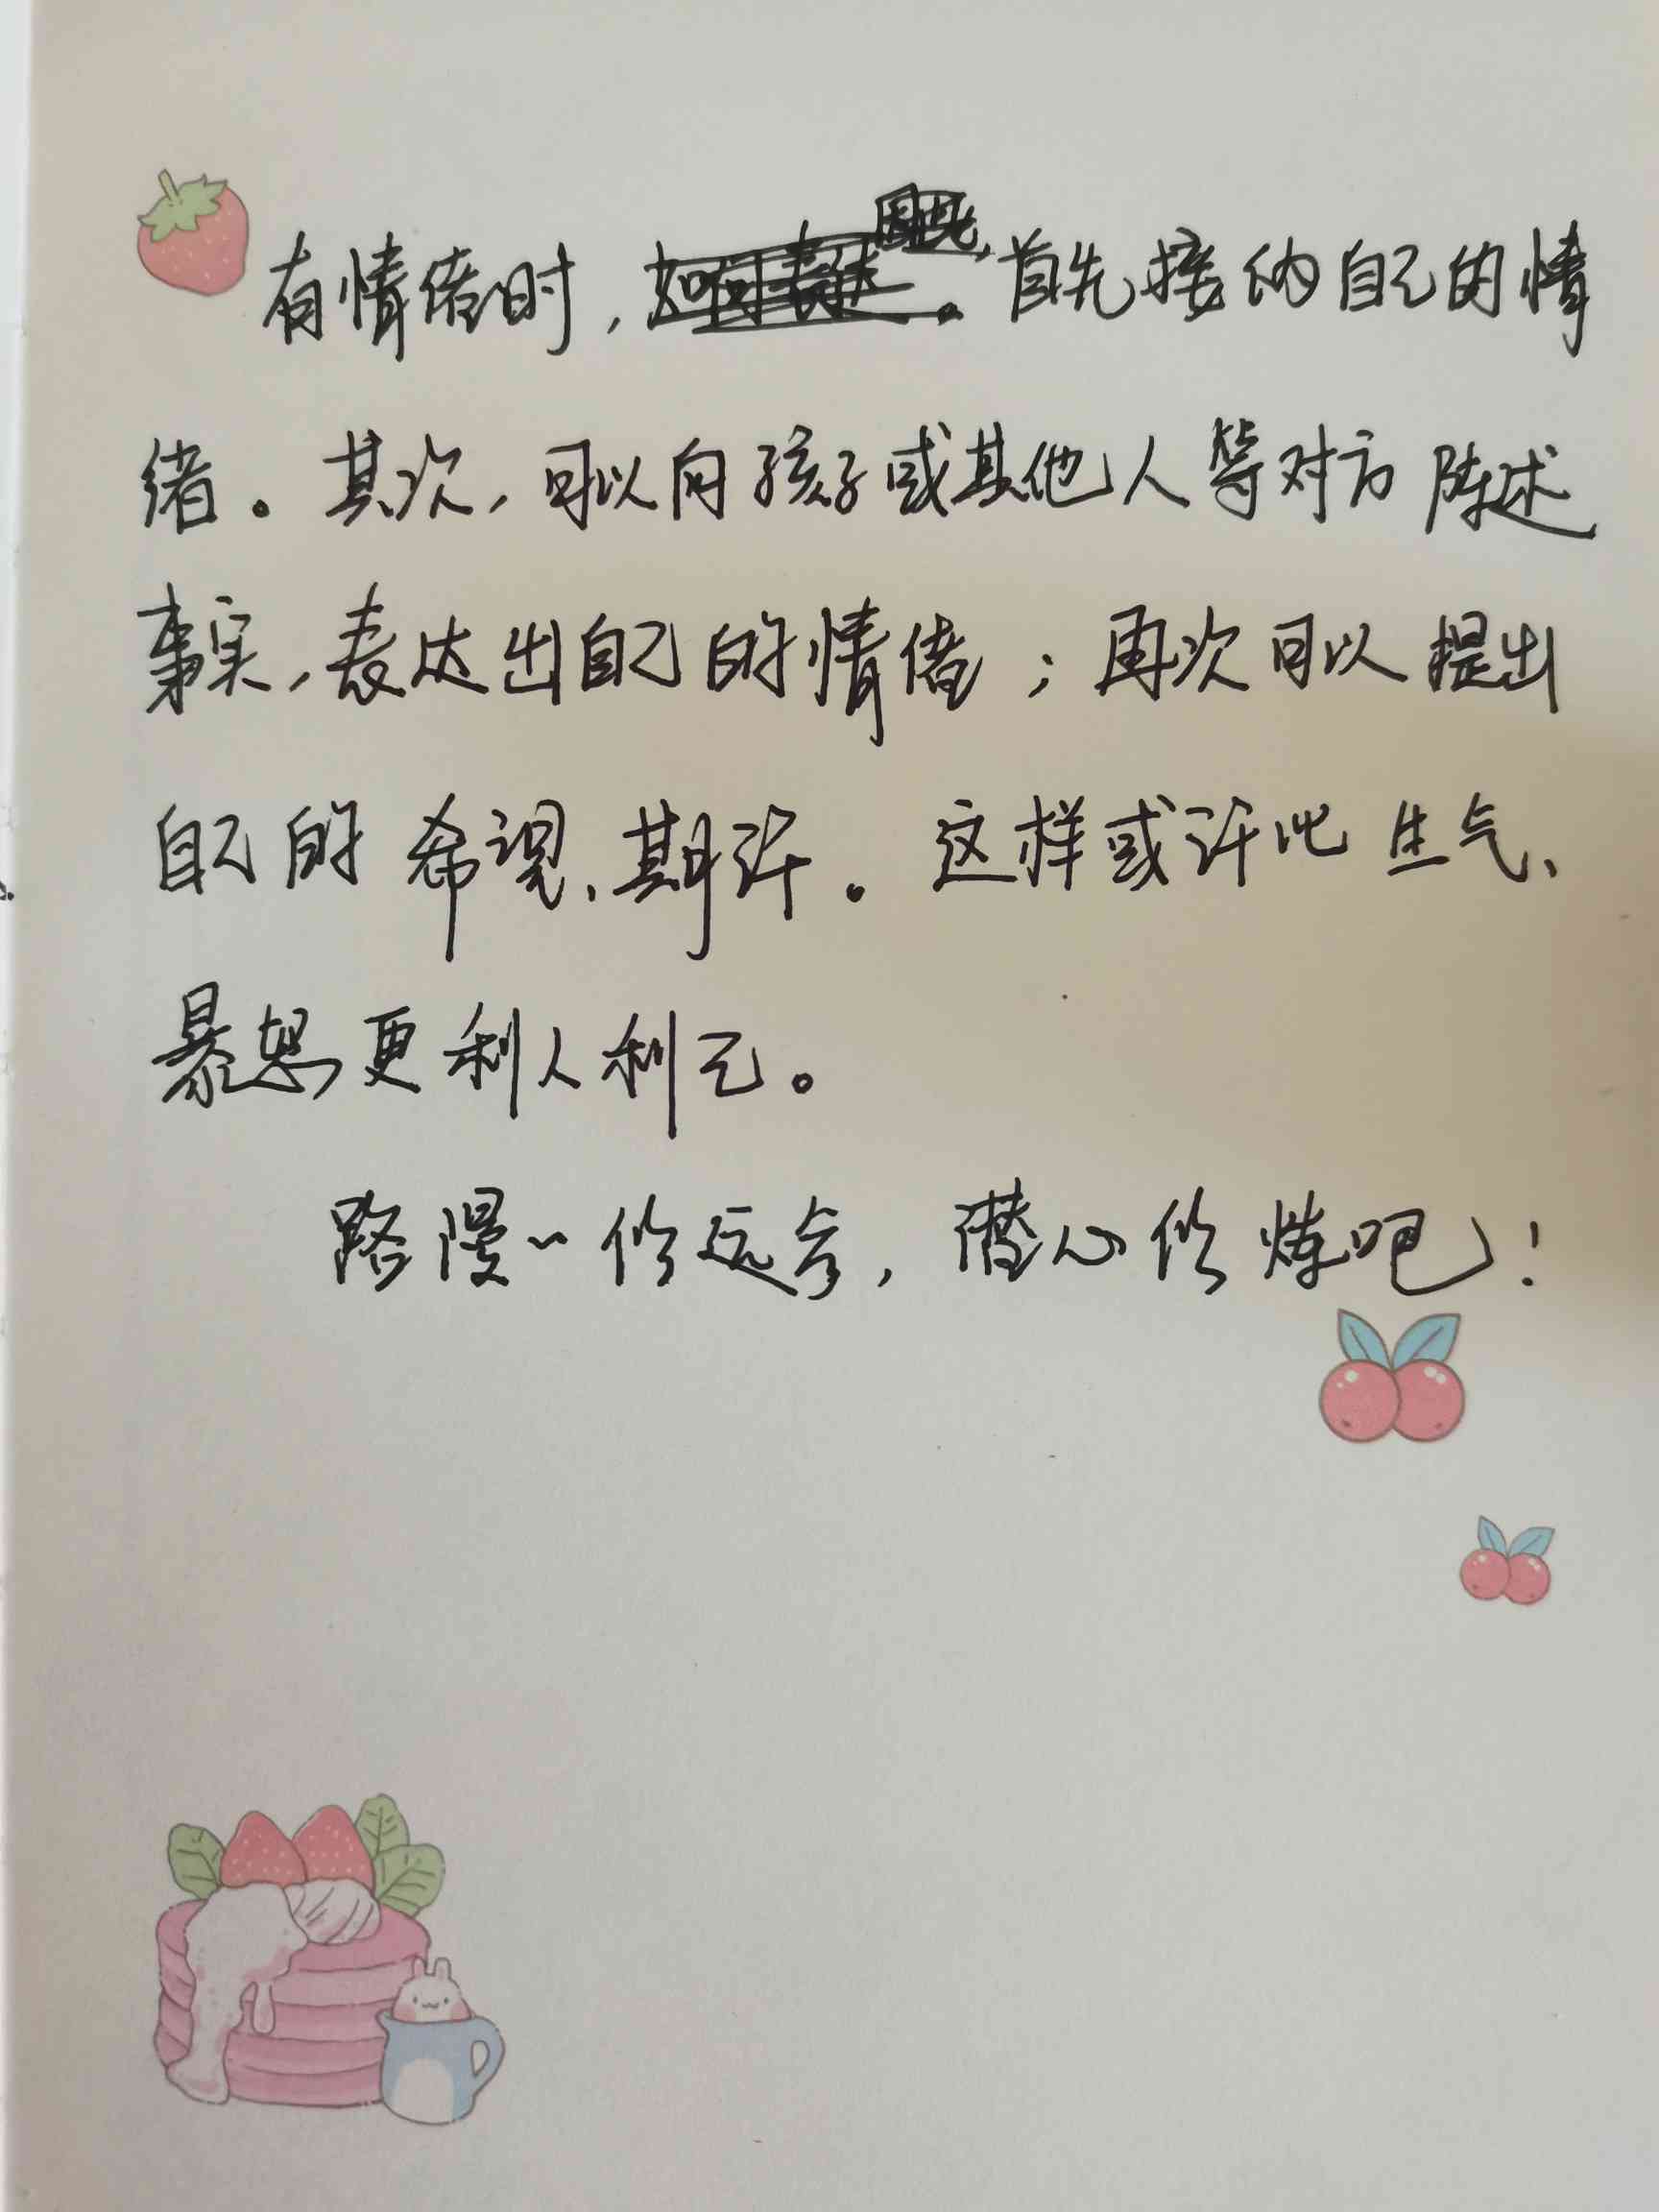 有情绪时，首先接纳自己的情
绪。其次，可以向孩子或其他人等对方陈述
事实，表达出自己的情绪；再次可以提出
自己的希望、期许。这样或许比生气、
暴怒更利人利己。
路漫~修远兮，潜心修炼吧！